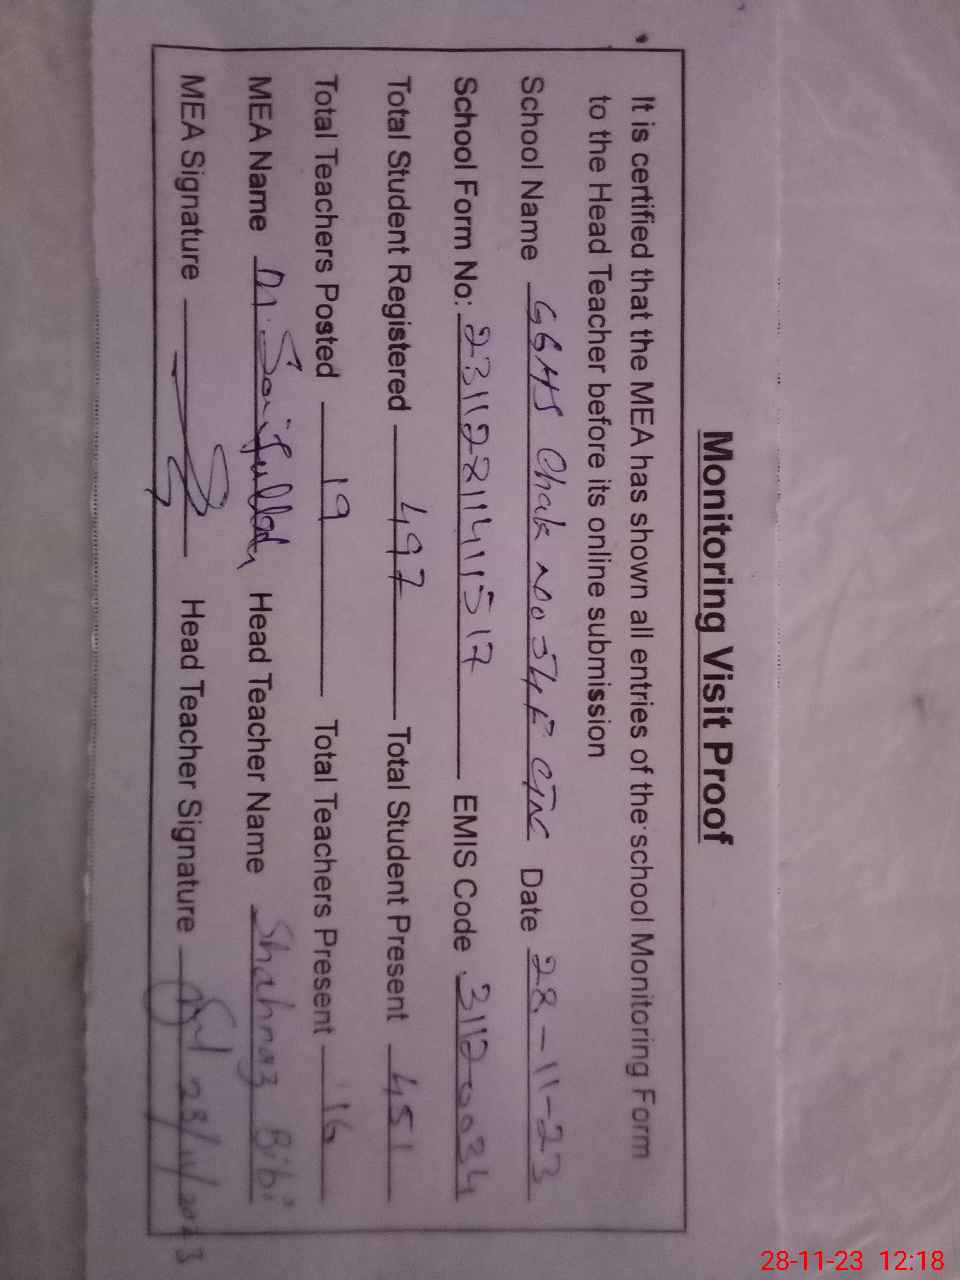 Monitoring Visit Proof
It is certified that the MEA has shown all entries of the school Monitoring Form
to the Head Teacher before its online submission
School Name GGHS Chak No 54 F CTN Date 28-11-23
School Form No: 23112211411517 EMIS Code 31120034
Total Student Registered 497 Total Student Present 451
Total Teachers Posted 19 Total Teachers Present 16
MEA Name M. Head Teacher Name Shahnaz Bibi
MEA Signature Head Teacher Signature 28/11/2023
28-11-23 12:18